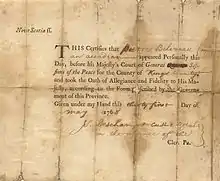 Nova Scotia ss.
THIS Certifies that
an accadian appeared Personally this
Day, before his Majesty's Court of General Ses-
sions of the Peace for the County of Kings County
and took the Oath of Allegiance and Fidelity to His Ma-
jesty, according to the Form by the
ment of this Province.
Given under my Hand this thirty first Day of
May 1768
Cler. Pa.